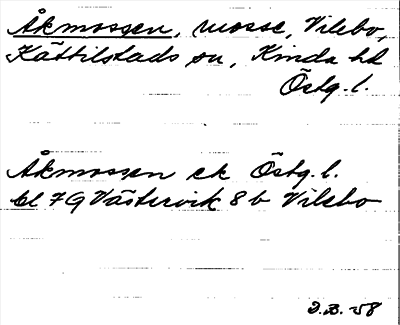 Åkmossen, mosse, Vilebo,
Kättilstads sn, Kinda hd
Östg. l.
Åkmossen ek Östg. l.
bl 7G Västervik 8 b Vilebo
J.B. 58